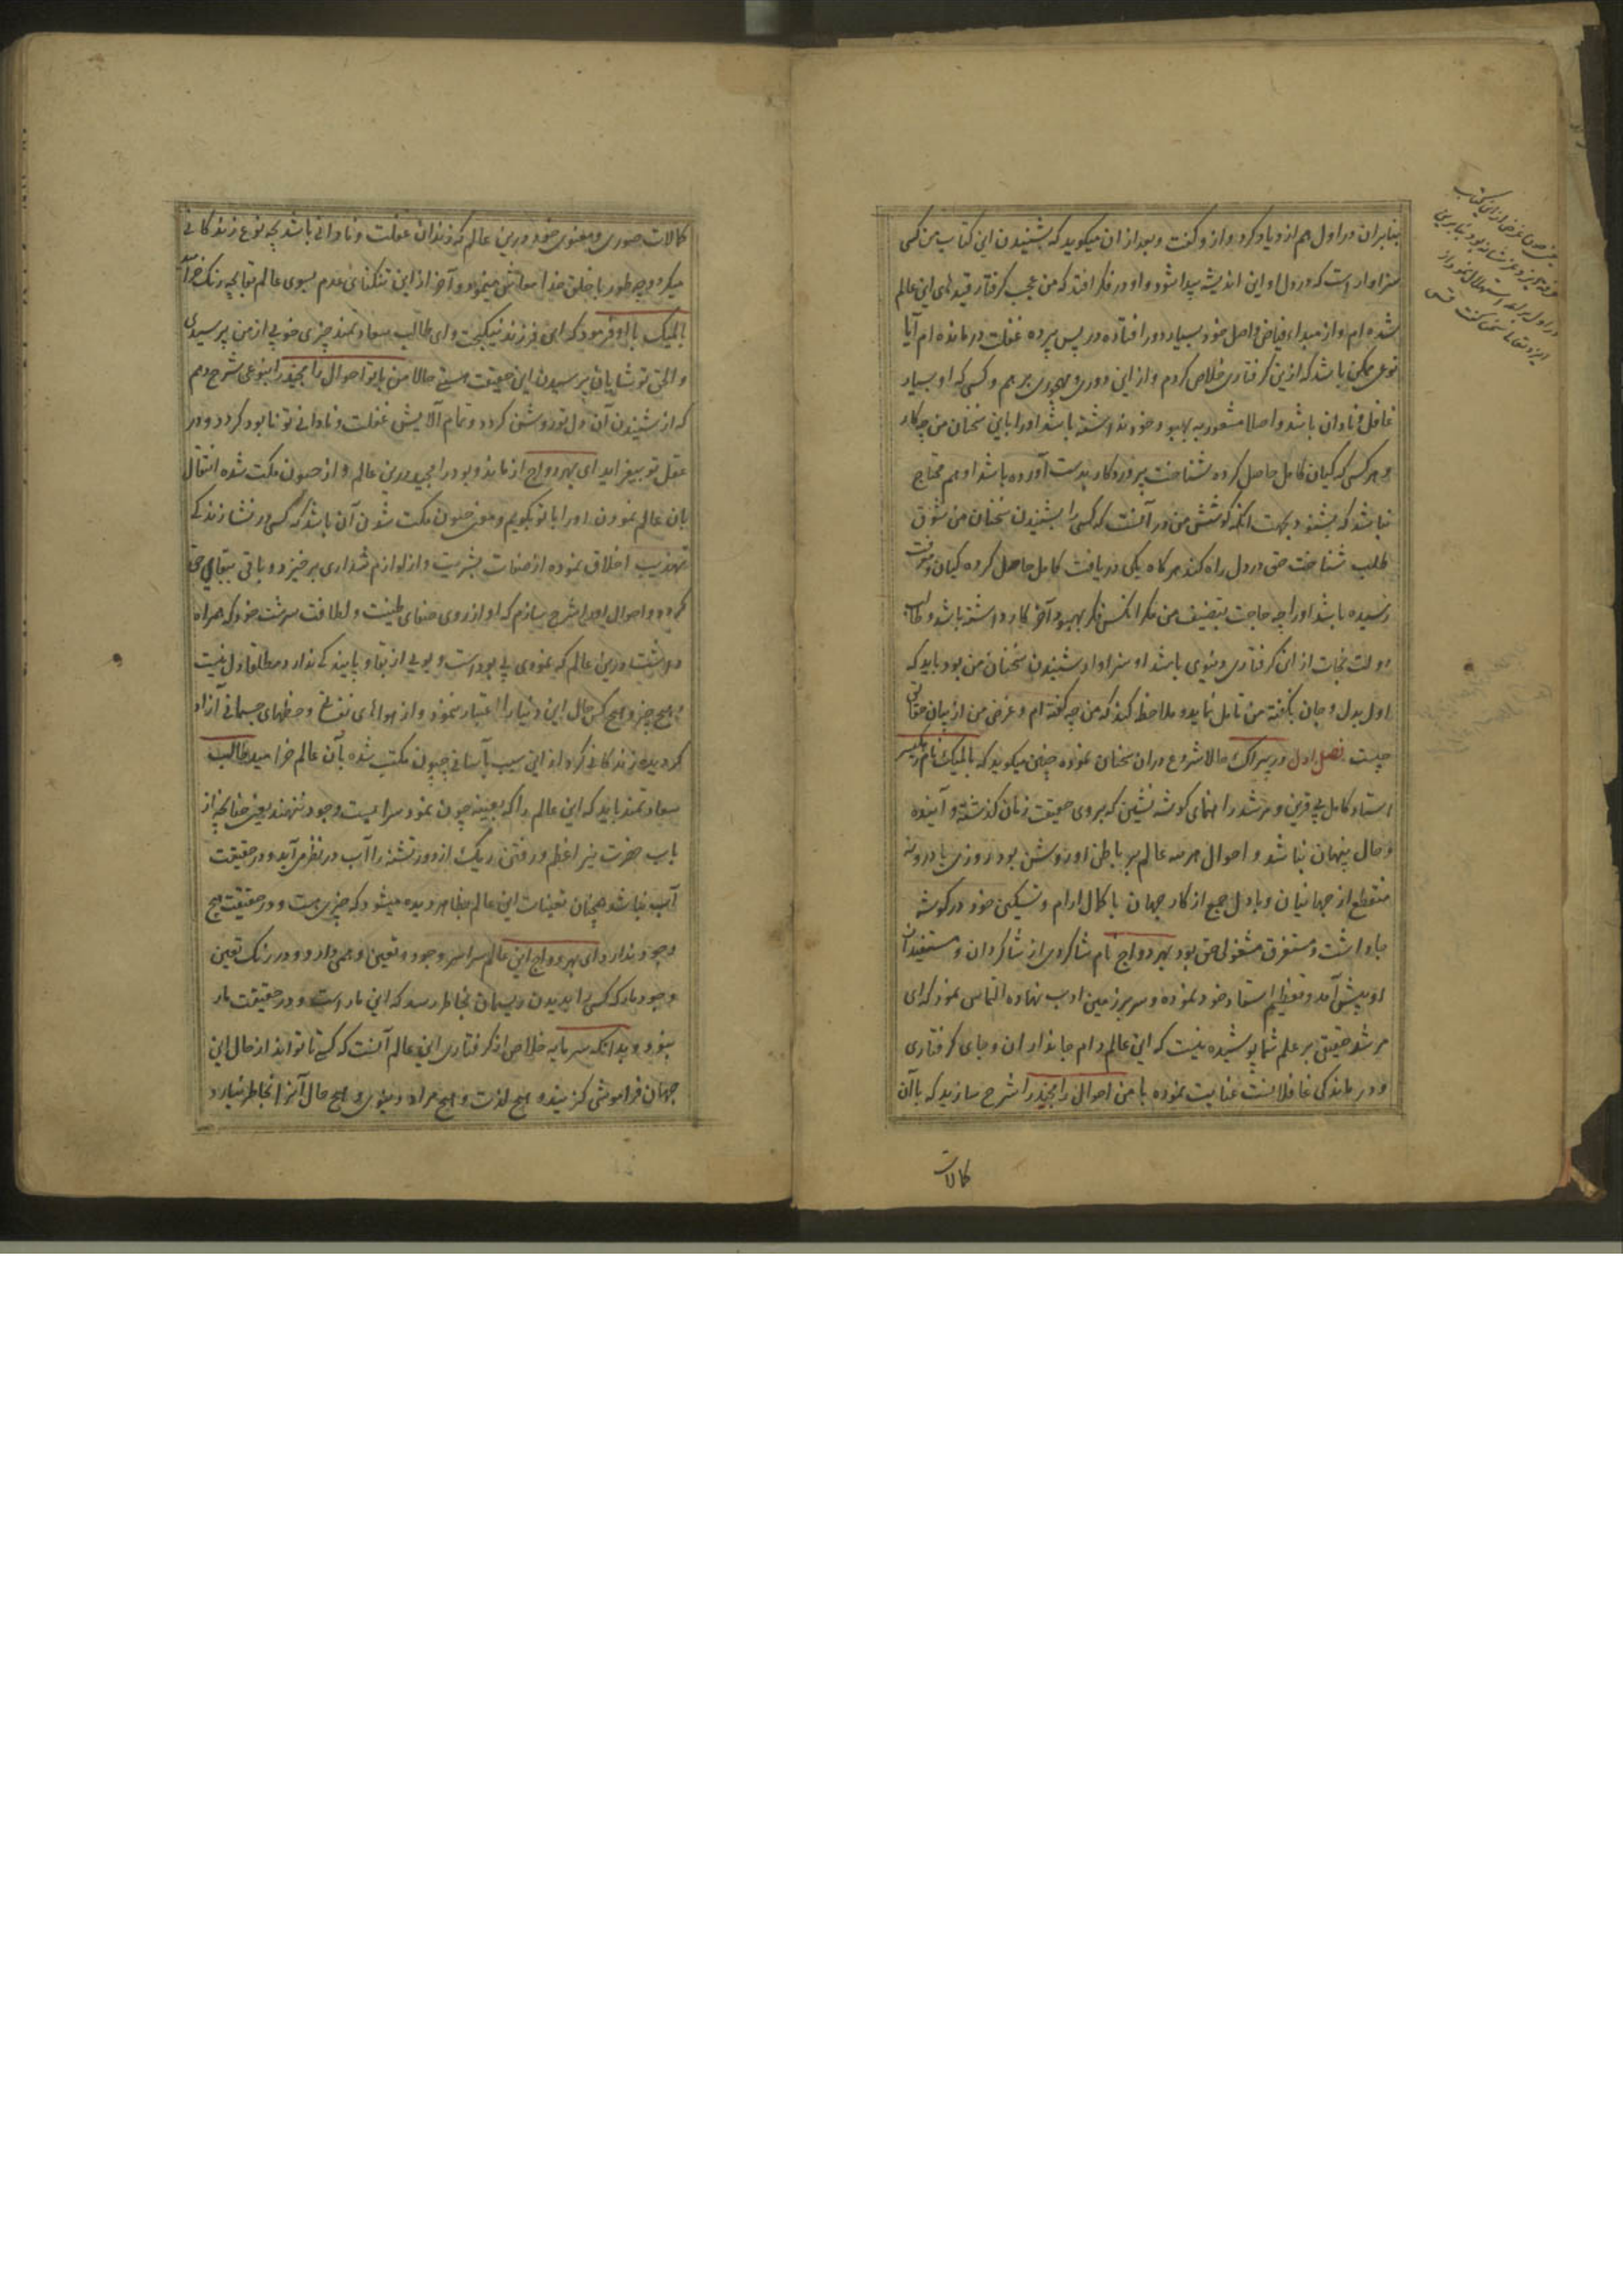 بنابران در اول هم ازو یاد کرد و ازو گفت و بعد ازان میکوید که بشنیدن این کتاب من کسی
سزاوار است که در دل او این اندیشه پیدا شود و او در فکر افتد که من عجب کرفتار قیدهای این عالم
شده ام و از مبداء فیاض و اصل خود بسیار دور افتاده در پس پرده غفلت در مانده ام آیا
نوعی ممکن باشد که ازین کرفتاری خلاص کردم و از این دوری و مهجوری برهم و کسی که او بسیار
غافل و نادان باشد و اصلا مشعور به بهبود خود نداشته باشد او را باین سخنان من چه کار
و هر کسی که کیان کامل حاصل کرده شناخت پروردکار بدست آورده باشد او هم محتاج
نباشد که بشنود بجهت انکه کوشش من در آنست که کسی را بشنیدن سخنان من شوق
طلب شناخت حق در دل راه کند هر کاه یکی دریافت کامل حاصل کرده کیان و معرفت
رسیده باشد او را چه حاجت بتصنیف من مکر انکس فکر بهبود آخر کار داشته باشد و طالب
دولت نجات از این کرفتاری دنیوی باشد او سزاوار شنیدن سخنان من بود باید که
اول بدل و جان بکفته من تامل نماید و ملاحظه کند که من چه کفته ام و غرض من از بیان حقایق
چیست فصل اول در بیراک حالا شروع دران سخنان نموده چنین میکوید که بالمیک نام رکیسر
استاد کامل بی قرین و مرشد راهنمای کوشه نشین که بروی حقیقت زمان کذشته و آینده
و حال پنهان نباشد و احوال هر سه عالم بر باطن او روشن بود روزی با درونه
منقطع از جهانیان و با دل جمع از کار جهان با کمال ارام و تسکین خود در کوشه
جا داشت و مستغرق مشغولی حق بود بهردواج نام شاکردی از شاکردان و مستفیدان
او پیش آمد و تعظیم استاد خود نموده و سر بر زمین ادب نهاده التماس نمود که ای
مرشد حقیقی بر علم شما پوشیده نیست که این عالم دام جانداران و جای کرفتاری
و در ماندکی غافلانست عنایت نموده با من احوال رامچندر را شرح سازید که با آن
کالات
کالات صوری و معنوی خود درین عالم که زندان غفلت و نادانی باشد بچه نوع زندکانی
میکرد و چه طور با خلق خدا معاش مینمود و آخر از این تنکنای عدم بسوی عالم بقا بچه رنک خرامد
بالمیک با او فرمود که ای فرزند نیکبخت و ای طالب سعادتمند چیزی خوبی از من پرسیدی
و الحق تو شایان پرسیدن این حقیقت هستی حالا من با تو احوال رامچندر را بنوعی شرح دهم
که از شنیدن آن دل تو روشن کردد و تمام آلایش غفلت و نادانی تو نابود کردد و در
عقل تو بیفزاید ای بهردواج از ماند و بود رامچندر درین عالم و از جیون مکت شده انتقال
بان عالم نمودن او را با تو بکویم و معنی جیون مکت شدن آن باشد که کسی در نشاء زندکی
تهذیب اخلاق نموده از صفات بشریت و از لوازم شداری بر خیزد و باقی ببقای حق
کردد و احوال او را شرح سازم که او از روی صفای طینت و لطافت سرشت خود که همراه
داشت درین عالم که نمودی بی بود است و بویی از بقا و پایندکی ندارد مطلقا دل نبست
و هیچ چیز و هیچ کس حال این دنیا را اعتبار ننمود و از هواهای نفسانی و حظهای جسمانی آزاد
کردیده زندکانی کرد از این سبب بآسانی جیون مکت شده بآن عالم خرامید طالب
سعادتمند باید که این عالم را که بعینه چون نمود سرا بیست وجود ننهند یعنی چنانچه از
تاب حضرت نیر اعظم و رفتن ریک از دور تشنه را آب در نظر می آید و در حقیقت
آب نباشد همچنان تعینات این عالم بظاهر دیده میشود که چیزی هست و در حقیقت هیچ
وجود ندارد ای بهردواج این عالم سراسر وجود و تعین وهمی دارد و در رنک تعین
وجود مار که کسی را بدیدن ریسمان بخاطر رسد که این مار است و در حقیقت مار
نبود و بدانکه سرمایه خلاص از کرفتاری این عالم آنست که کسی تا تواند از حال این
جهان فراموشی کزیند و هیچ لذت و هیچ مراد دنیوی و هیچ حال آنرا بخاطر نیارد